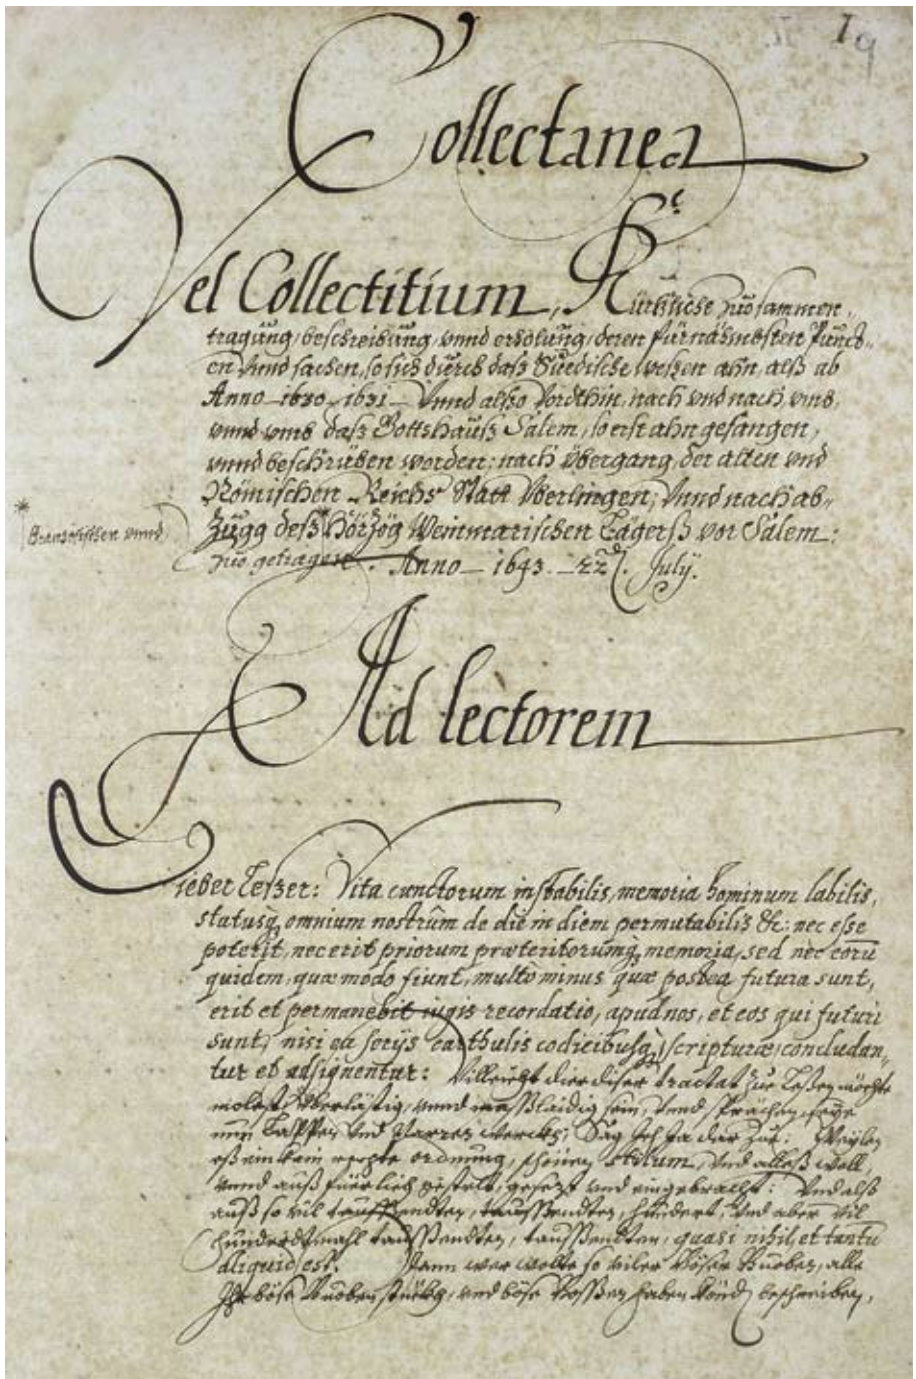 19
Collectanea
Vel Collectitium, Kürtzliche zuosammen
tragüng, beschreibüng, vnnd erholüng, deren fürnämbsten Punct-
en vnnd sachen, so sich dürch daß Suedische weßen ahn, alß ab
Anno 1630. 1631. Vnnd also vordthin, nach vnd nach, vmb,
vnnd vmb daß Gottshauß Salem, so erst ahn gefangen,
vnnd beschriben worden: nach übergang der alten vnd
Römischen Reichs Statt Vberlingen; Vnnd nach ab-
* Zügg deß Hörzog Weinmarischen Lägerß vor Salem:
vnnd
zuo getragen. Anno 1643. 22. July.
Ad lectorem
Lieber Leßer: Vita cunctorum instabilis, memoria hominum labilis,
statusq, omnium nostrum de die in diem permutabilis &c: nec esse
poterit, nec erit priorum præteritorumq, memoria, sed nec eorū
quidem, quæ modo fiunt, multo minus quæ postea futura sunt,
erit et permanebit iugis recordatio, apud nos, et eos qui futuri
sunt, nisi ea serijs carthulis codicibusq, scripturæ concludan-
tur et adsignentur: Villeicht dier diser tractat zue leßen möchte
molest, überlästig, vnnd maßlaidig sein, vnd sprächen, seye
nun Lappen vnd Narren werckh; Sag Ich Ja dar zue: Weylen
eß ein kain rechte ordnung, schönen stilum, vnd alleß woll,
vnnd auß füerlich gestelt, gesezt vnd eingebracht: Vnd alß
auß so vil taußendten, taußendten, hundert, vnd aber vil
hundertmahl taußendten, taußendten, quasi nihil, et tantū
aliquid est. Dann wer wolte so viler böser Buoben, alle
Ihr böse Buobenstückh, vnd böse Boßen haben könd beschreiben,